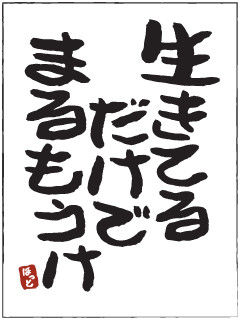 生きてる
だけで
まるもうけ
ほっと